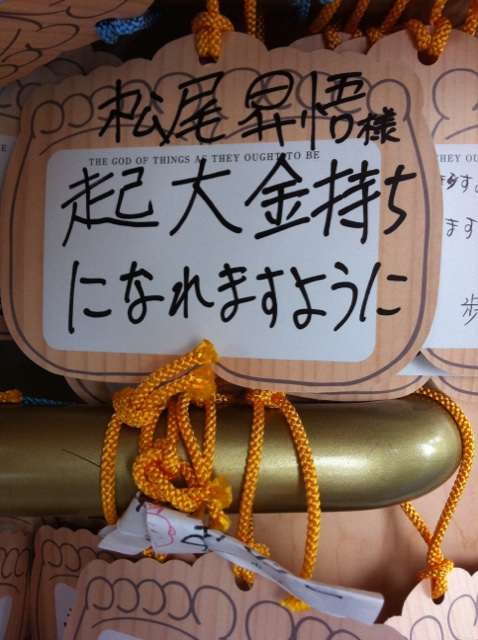 松尾昇悟様
THE GOD OF THINGS AS THEY OUGHT TO BE
起大金持ち
になれますように
HEY OU
ます
歩